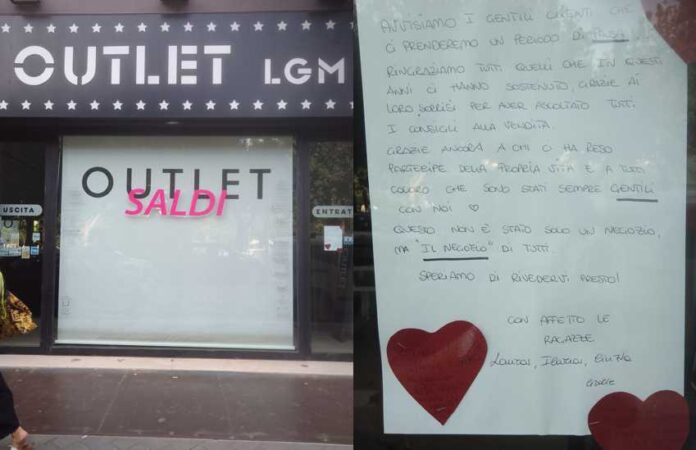 OUTLET LGM
OUTLET
SALDI
USCITA
ENTRAT
AVVISIAMO I GENTILI CLIENTI CHE
CI PRENDEREMO UN PERIODO DI PAUSA.
RINGRAZIAMO TUTTI QUELLI CHE IN QUESTI
ANNI CI HANNO SOSTENUTO, GRAZIE AI
LORO SORRISI PER AVER ASCOLTATO TUTTI
I CONSIGLI ALLA VENDITA.
GRAZIE ANCORA A CHI CI HA RESO
PARTECIPE DELLA PROPRIA VITA E A TUTTI
COLORO CHE SONO STATI SEMPRE GENTILI
CON NOI
QUESTO NON È STATO SOLO UN NEGOZIO,
MA "IL NEGOZIO" DI TUTTI.
SPERIAMO DI RIVEDERVI PRESTO!
CON AFFETTO LE
RAGAZZE
Laura, Ilaria,
GRAZIE